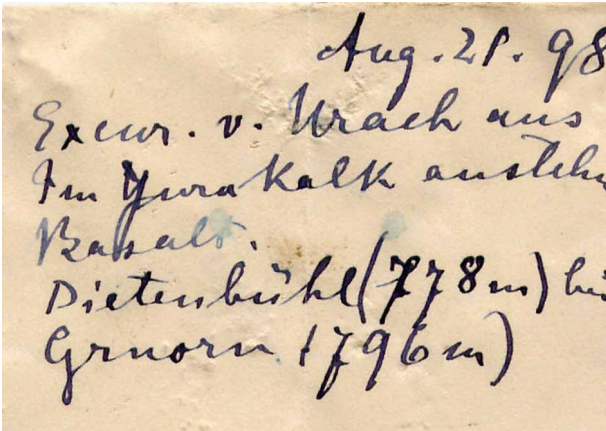 Aug. 21. 98
Excur. v. Urach aus
Im Jurakalk ansteh
Basalt.
Dietenbühl (778m) bei
Grnorn (796m)